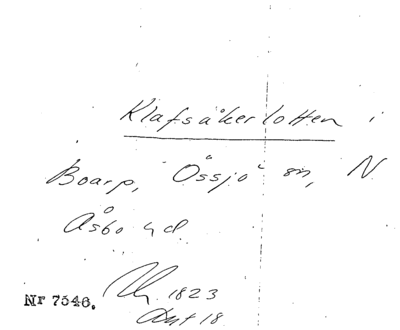 Klafsåkerlotten i
Boarp, Össjö sn, N
Åsbo hd
Nr 7546. 1823
18